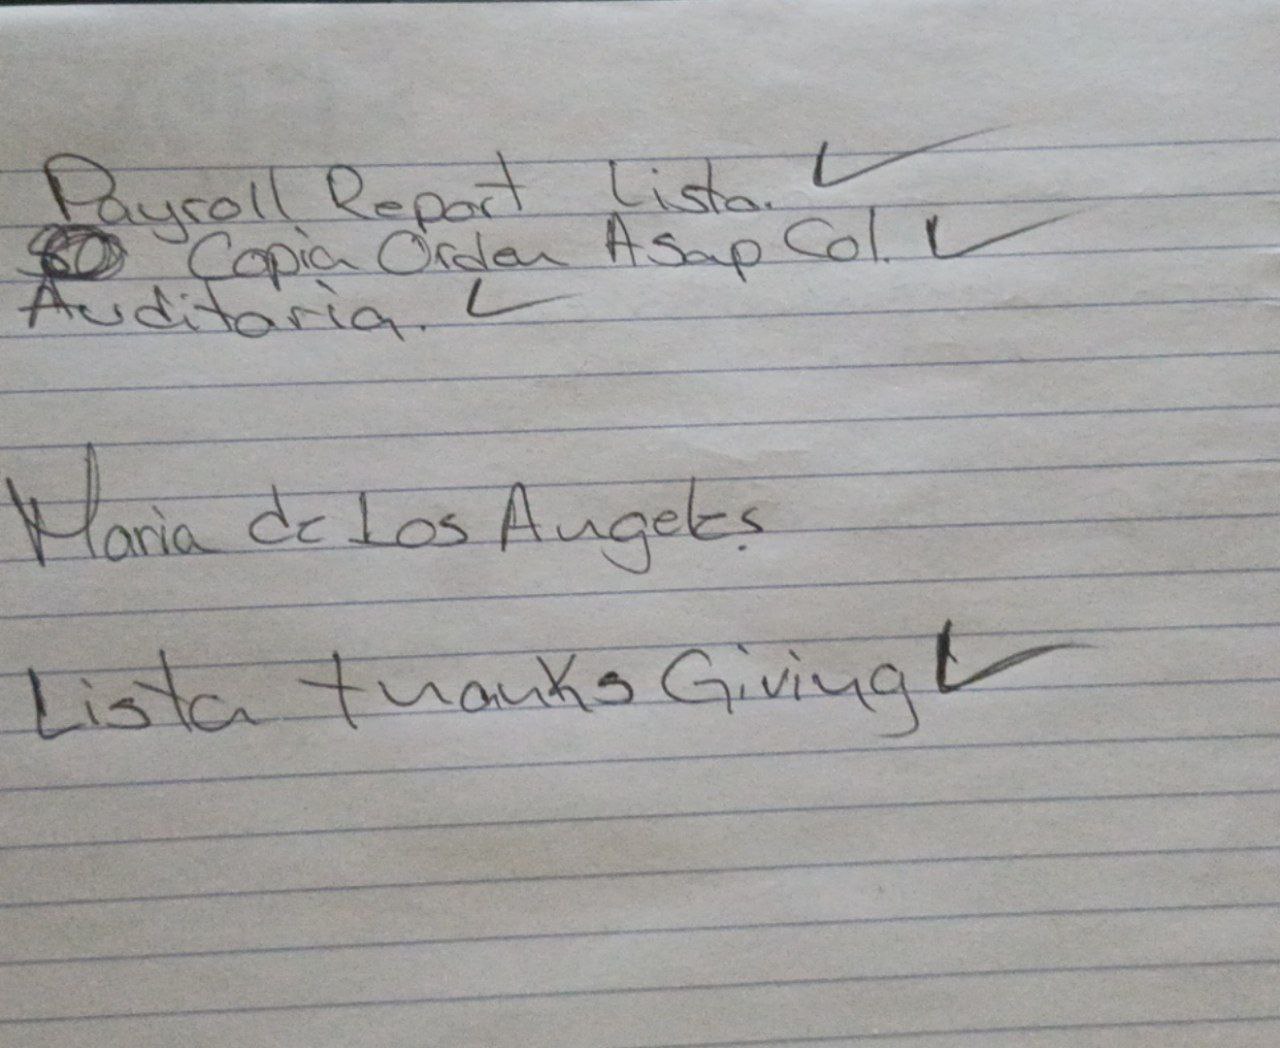 Payroll Report Lista. ✓
Copia Orden ASap Col. ✓
Auditoria. ✓
Maria de Los Angeles.
Lista thanks Giving ✓